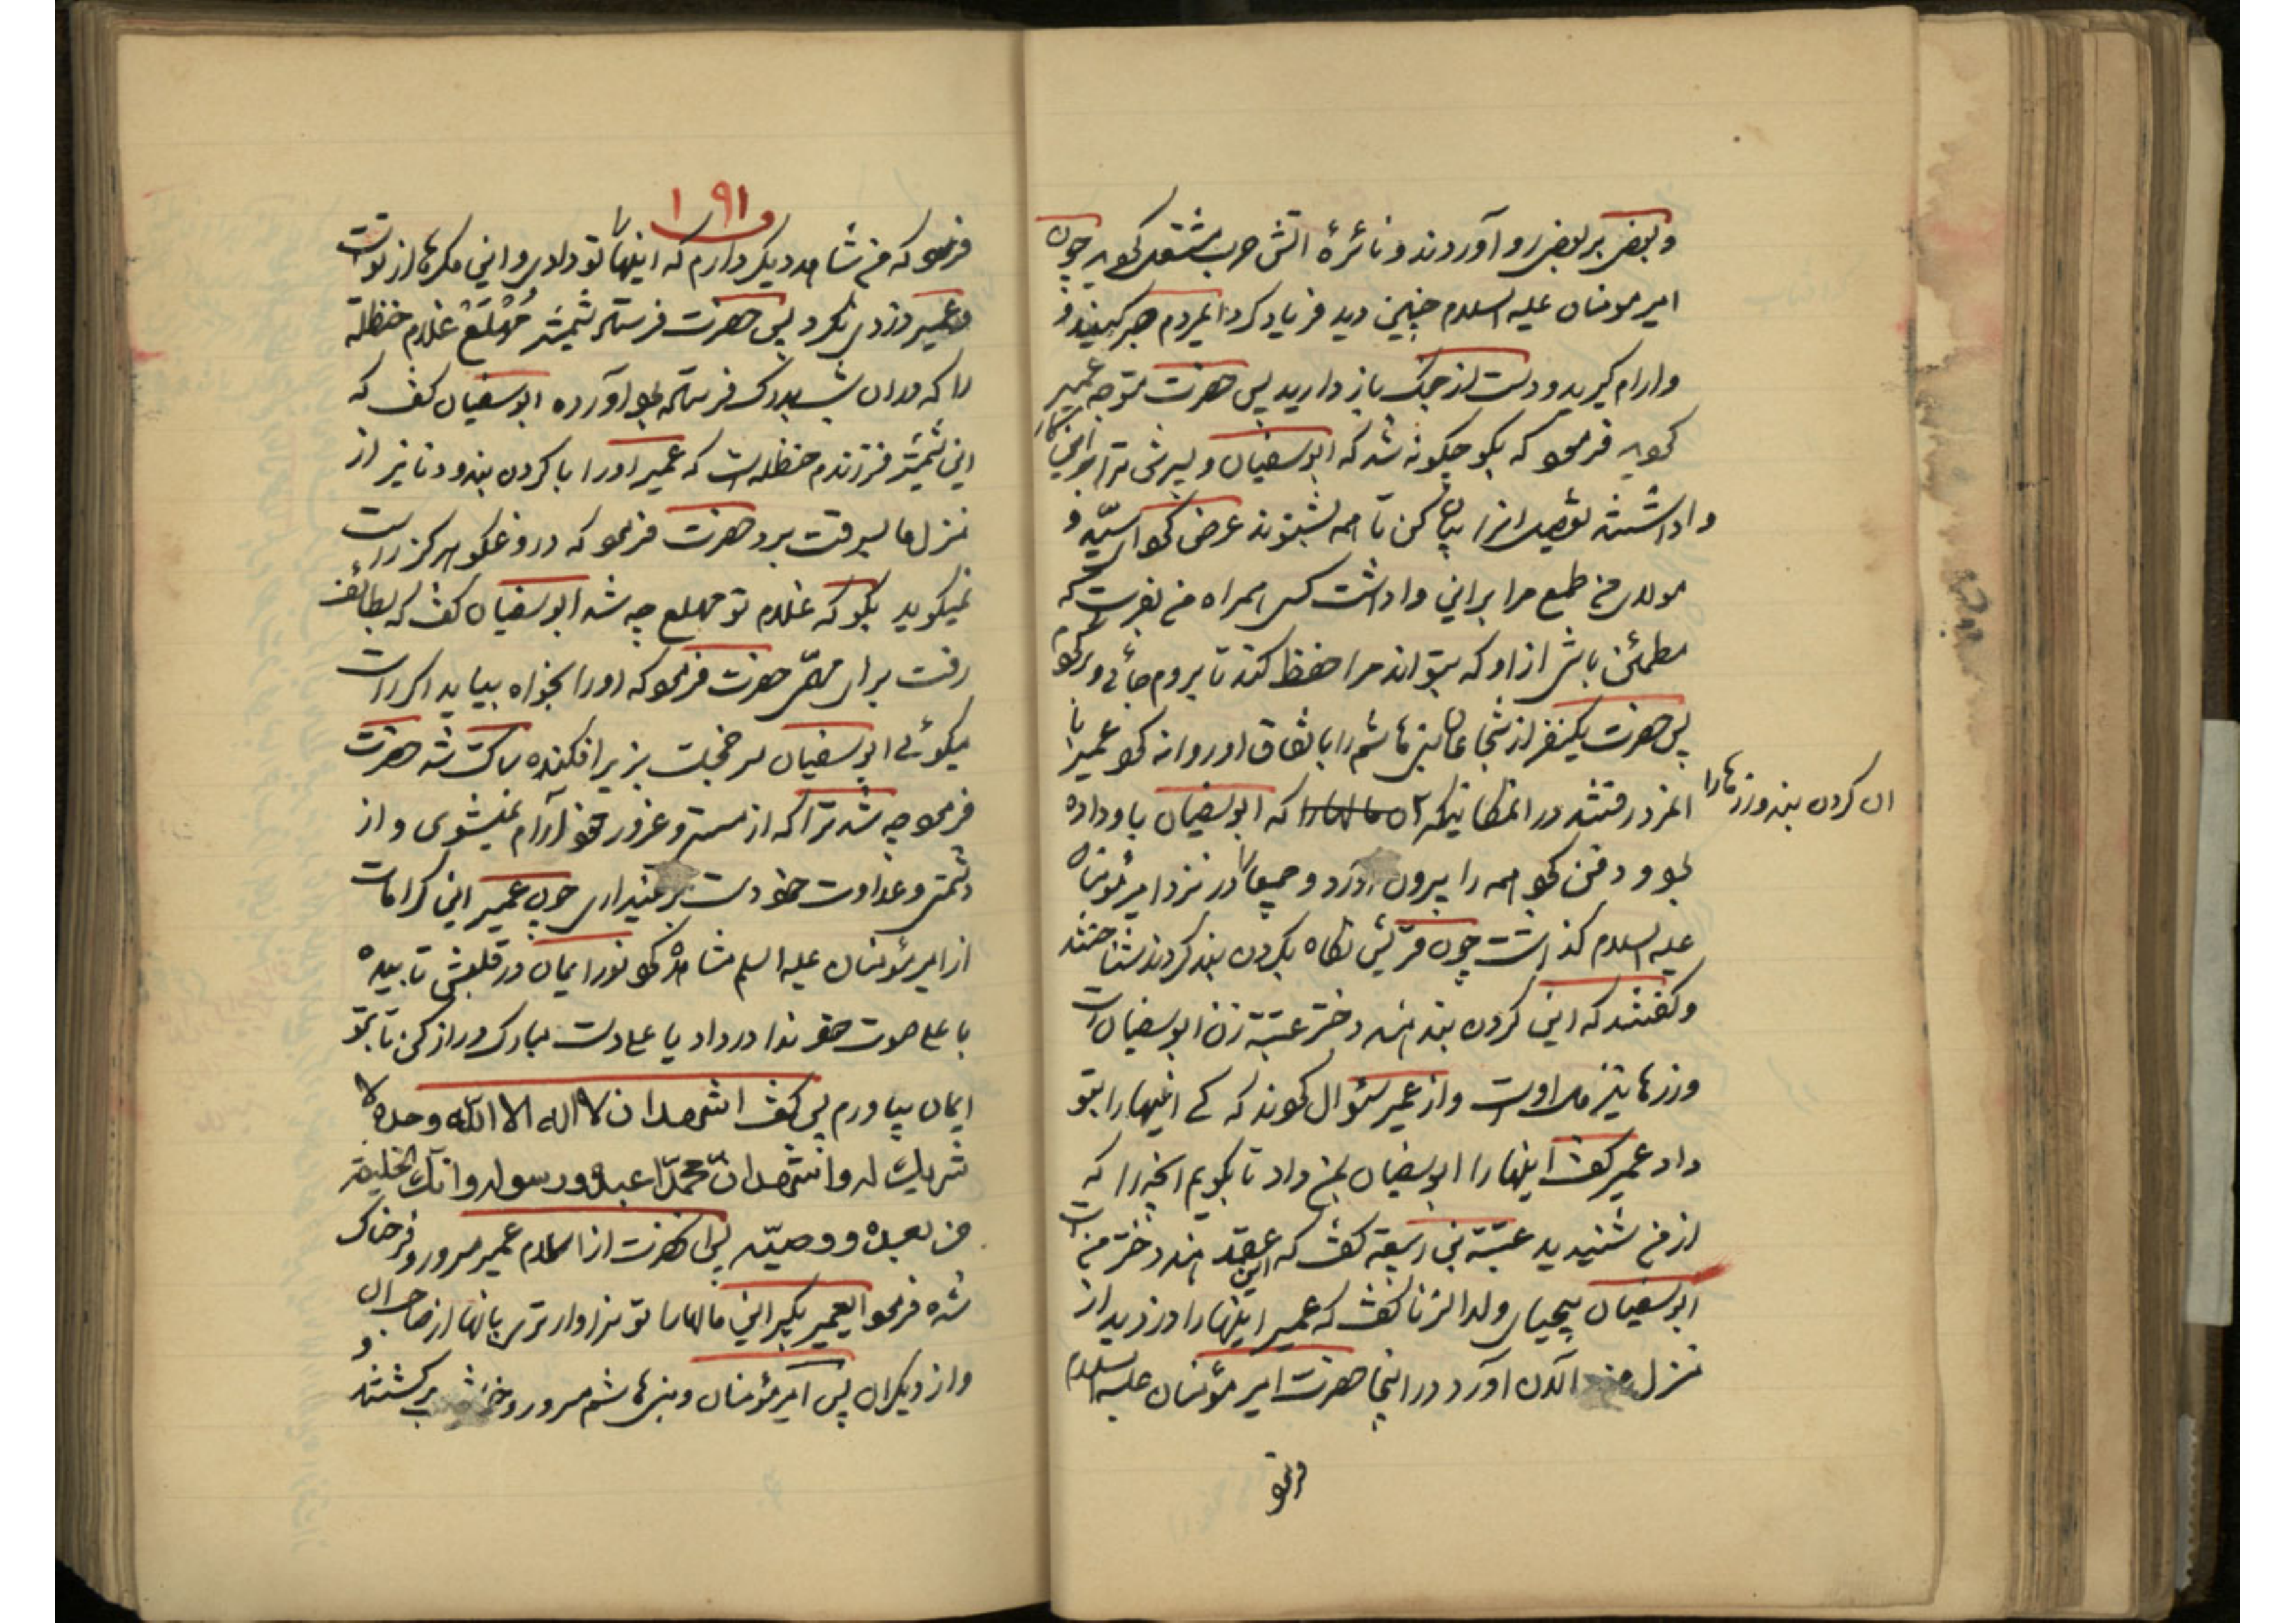 و بعض بر بعض رو آوردند و نائرهٔ اتش حرب مشتعل کردید چون
امیر مومنان علیه السلام چنین دید فریاد کرد ایمردم صبر کنید و
و ارام کیرید و دست از جنک باز دارید پس حضرت متوجه عمیر
کردید فرمود که بکو چکونه شد که ابوسفیان و پسرش ترا بر این کار
وا داشتند تفصیل انرا بیان کن تا همه بشنوند عرض کرد ای سید و
مولای من طمع مرا بر این وا داشت کسی همراه من بفرست که
مطمئن باشم از او که بتواند مرا حفظ کند تا بروم جائی و برکردم
پس حضرت یکنفر از شجاعان بنی هاشم را باتفاق او روانه کرد عمیر با
المزد رفتند در انمکانیکه ان کردن بند و زرها را که ابوسفیان باو داده
بود و دفن کرد همه را بیرون آورد و جمیعا در نزد امیر مؤمنان
علیه السلام کذاشت چون قریش نکاه بکردن بند کردند شناختند
و کفتند که این کردن بند هند دختر عتبة زن ابوسفیان است
و زرها نیز مال اوست و از عمیر سئوال کردند که کی اینها را بتو
داد عمیر کفت اینها را ابوسفیان بمن داد تا بکویم انچه را که
از من شنیدید عتبة بن ربیعه کفت که این عقد هند دختر من است
ابوسفیان بیحیای ولد الزنا کفت که عمیر اینها را دزدید از
منزل من الان آورد در اینجا حضرت امیر مؤمنان علیه السلام
فرمود
۱۹۱
فرمود که من شاهد دیکر دارم که اینها را تو دادی و این مکرها از توست
و عمیر دزدی نکرد پس حضرت فرستاد شمشیر مهلع غلام حنظلة
را که در ان شب بدرک فرستاده بود آورده ابوسفیان کفت که
این شمشیر فرزندم حنظله است که عمیر او را با کردن بند و دنانیر از
منزل ما بسرقت برد حضرت فرمود که دروغکو هرکز راست
نمیکوید بکو که غلام تو مهلع چه شد ابوسفیان کفت که بطائف
رفت برای مهمی حضرت فرمود که او را بخواه بیاید اکر راست
میکوئی ابوسفیان سر خجلت بزیر افکنده ساکت شد حضرت
فرمود چه شد ترا که از مستی و غرور خود آرام نمیشوی و از
دشمنی و عداوت خود دست بر نمیداری چون عمیر این کرامات
از امیر مؤمنان علیه السلم مشاهده کرد نور ایمان در قلبش تابیده
با علی صوت خود ندا در داد یا علی دست مبارک دراز کن تا بتو
ایمان بیاورم پس کفت اشهد ان لا اله الا الله وحده لا
شریک له و اشهد ان محمدا عبده و رسوله و انک الخلیفة
من بعده و وصیه پس انحضرت از اسلام عمیر مسرور و فرحناک
شده فرمود ایعمیر بکیر این مالها را تو سزاوارتری بانها از صاحبان
و از دیکران پس امیر مؤمنان و بنی هاشم مسرور و خوش برکشتند و